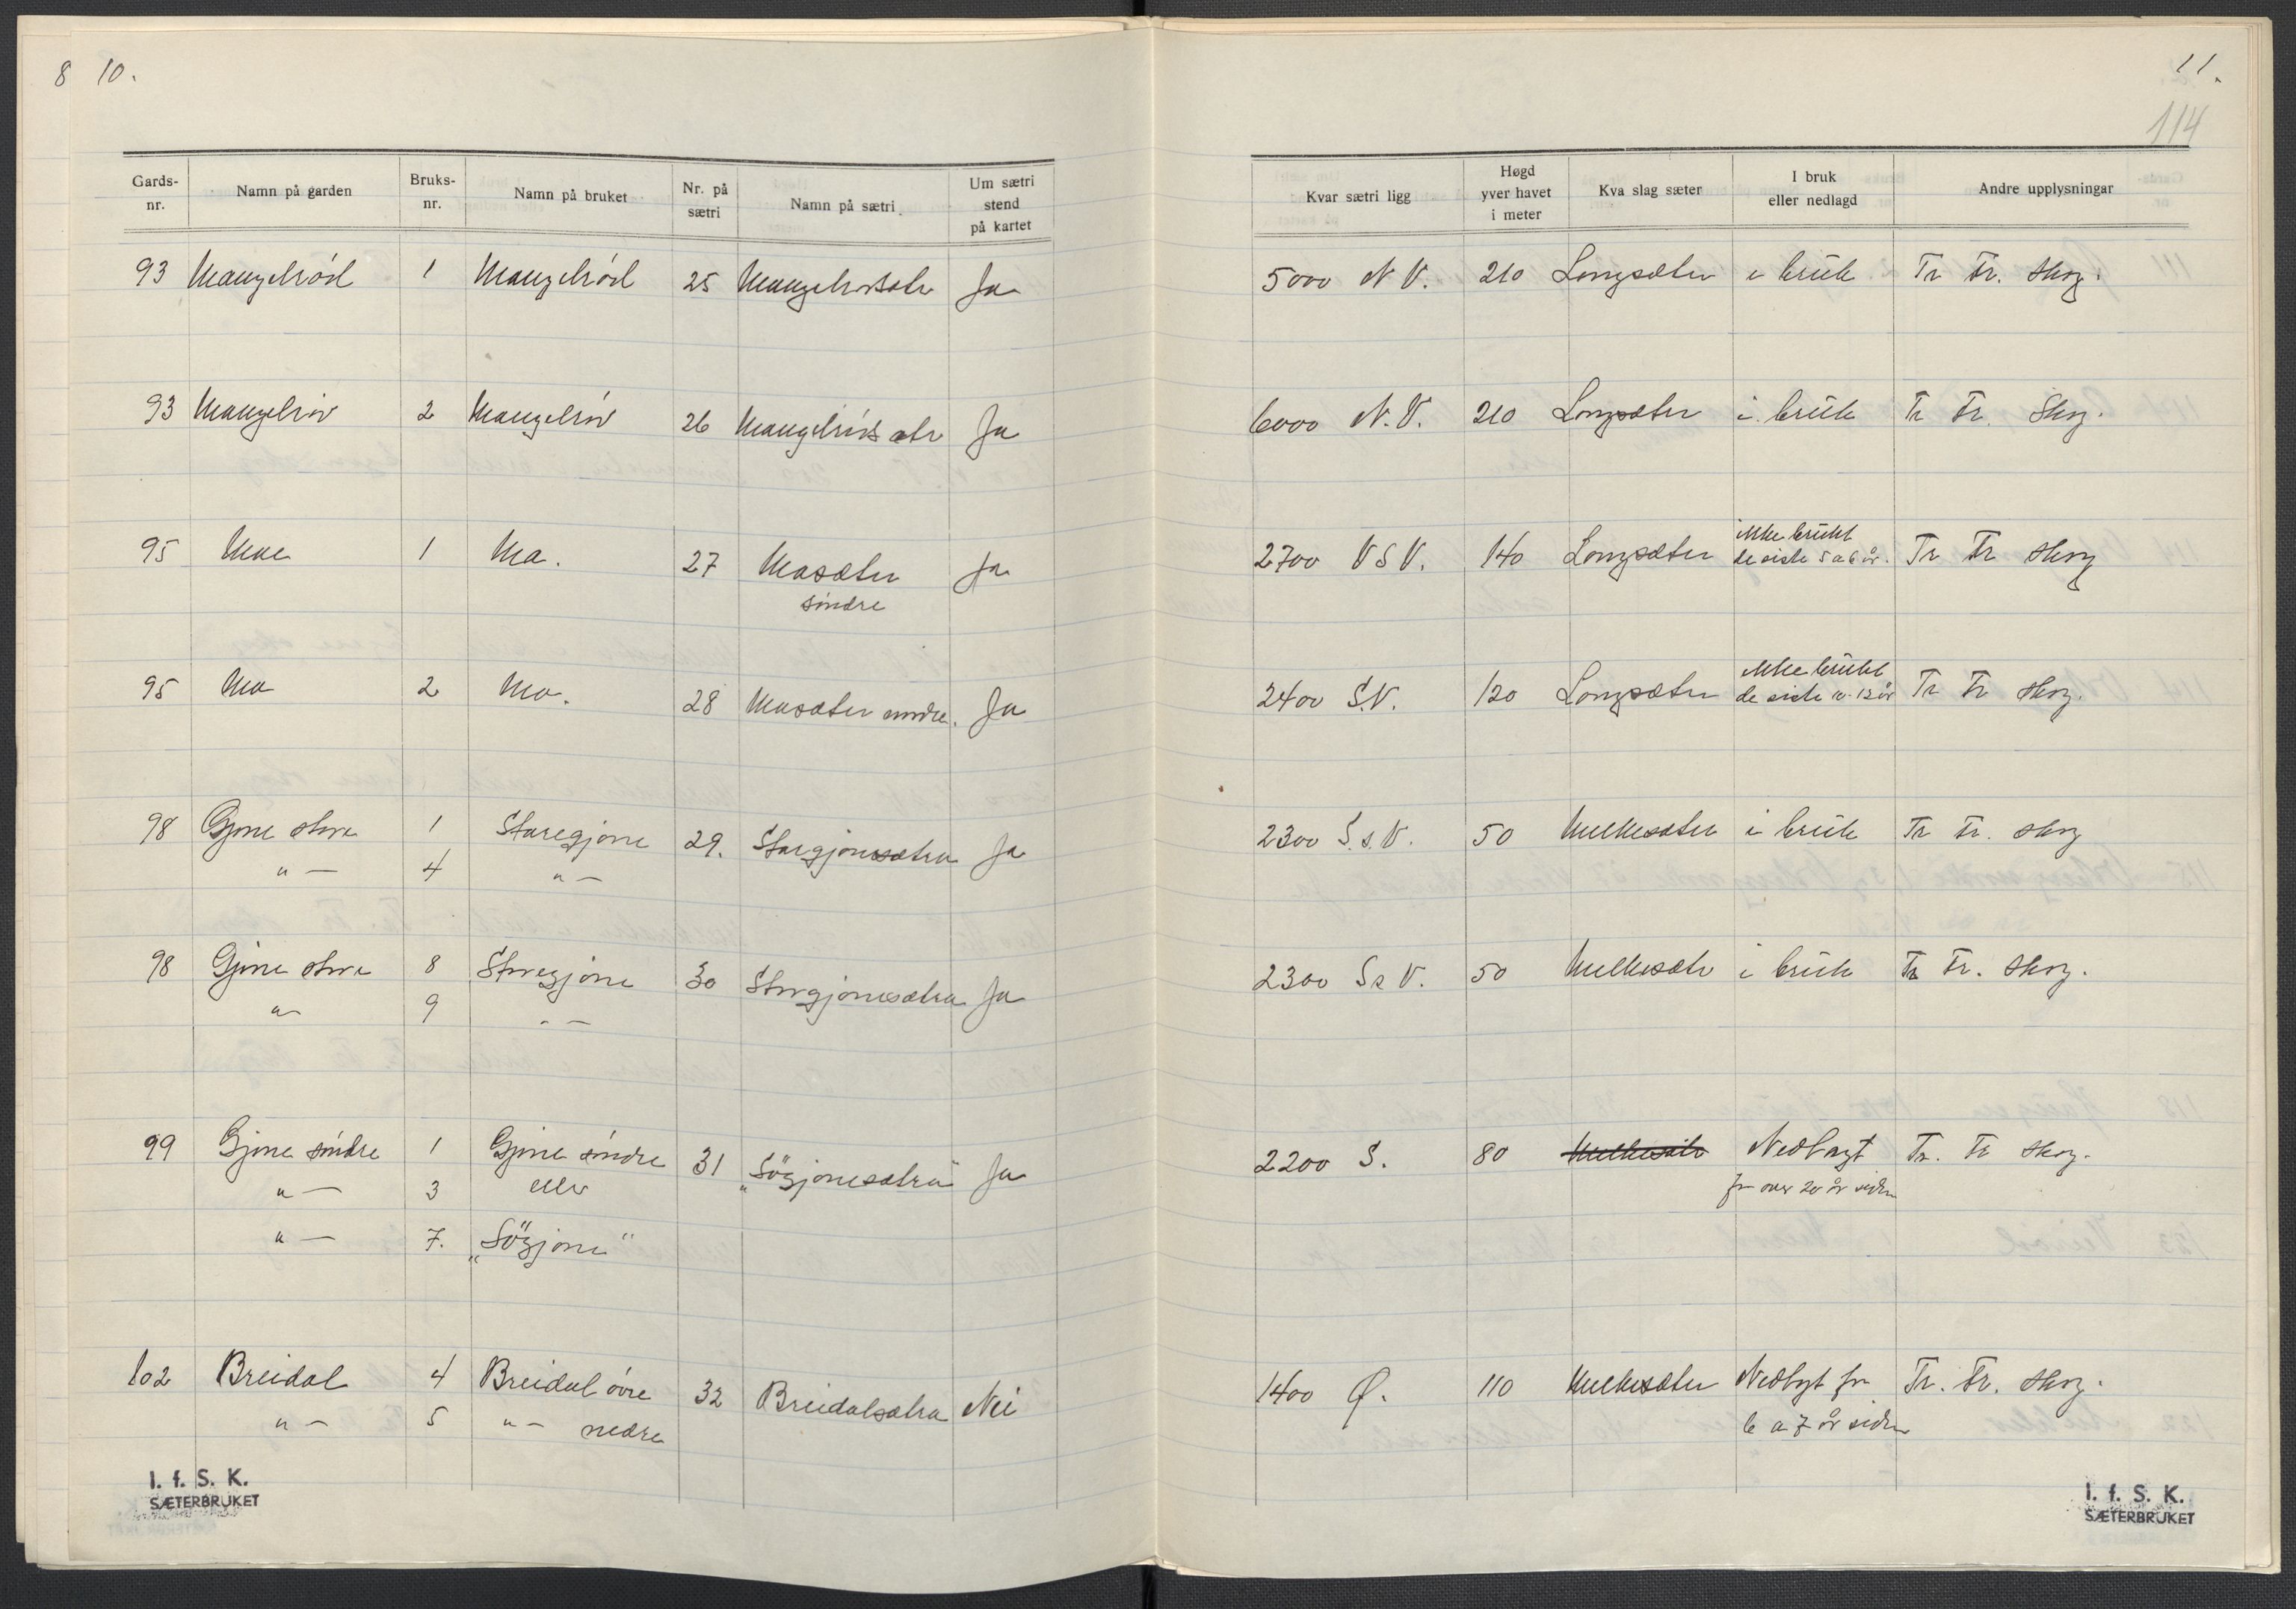 8 10.
Gards-nr. Namn på garden Bruks-nr. Namn på bruket Nr. på sætri Namn på sætri Um sætri stend på kartet
93 Mangelrød 1 Mangelrød 25 Ja
93 Mangelrød 2 Mangelrød 26 Ja
95 1 Mo. 27 Mosæter Ja
søndre
95 Mo 2 Mo. 28 Mosæter Ja
98 Gjone store 1 Storegjone 29. Storgjonesætra Ja
" — 4 " —
98 Gjone store 8 Storegjone 30 Storgjonesætra Ja
" 9 " —
99 Gjone søndre 1 Gjone søndre 31 „Søgjonesætra" Ja
" — 3 eller
" — 7. „Søgjone"
102 Breidal 4 Breidal øvre 32 Breidalsætra Nei
" — 5 " — nedre
I. f. S. K.
SÆTERBRUKET
11.
114
Kvar sætri ligg Høgd yver havet i meter Kva slag sæter I bruk eller nedlagd Andre upplysningar
5000 N V. 210 Longsæter i bruk Tr Fr. Skog.
6000 N. V. 210 Longsæter i bruk Tr Fr. Skog.
ikke brukt
2700 V S V. 140 Longsæter de siste 5 a 6 år. Tr Fr Skog
ikke brukt
2400 S.V. 120 Longsæter de siste 10-12 år Tr Fr Skog.
2300 S. s. V. 50 Melkesæter i bruk Tr Fr. Skog
2300 S s V. 50 Melkesæter i bruk Tr Fr. Skog.
2200 S. 80 Melkesæter Nedlagt Tr. Fr Skog.
for over 20 år siden
1400 Ø. 110 Melkesæter Nedlagt for Tr. Fr. Skog.
6 a 7 år siden
I. f. S. K.
SÆTERBRUKET